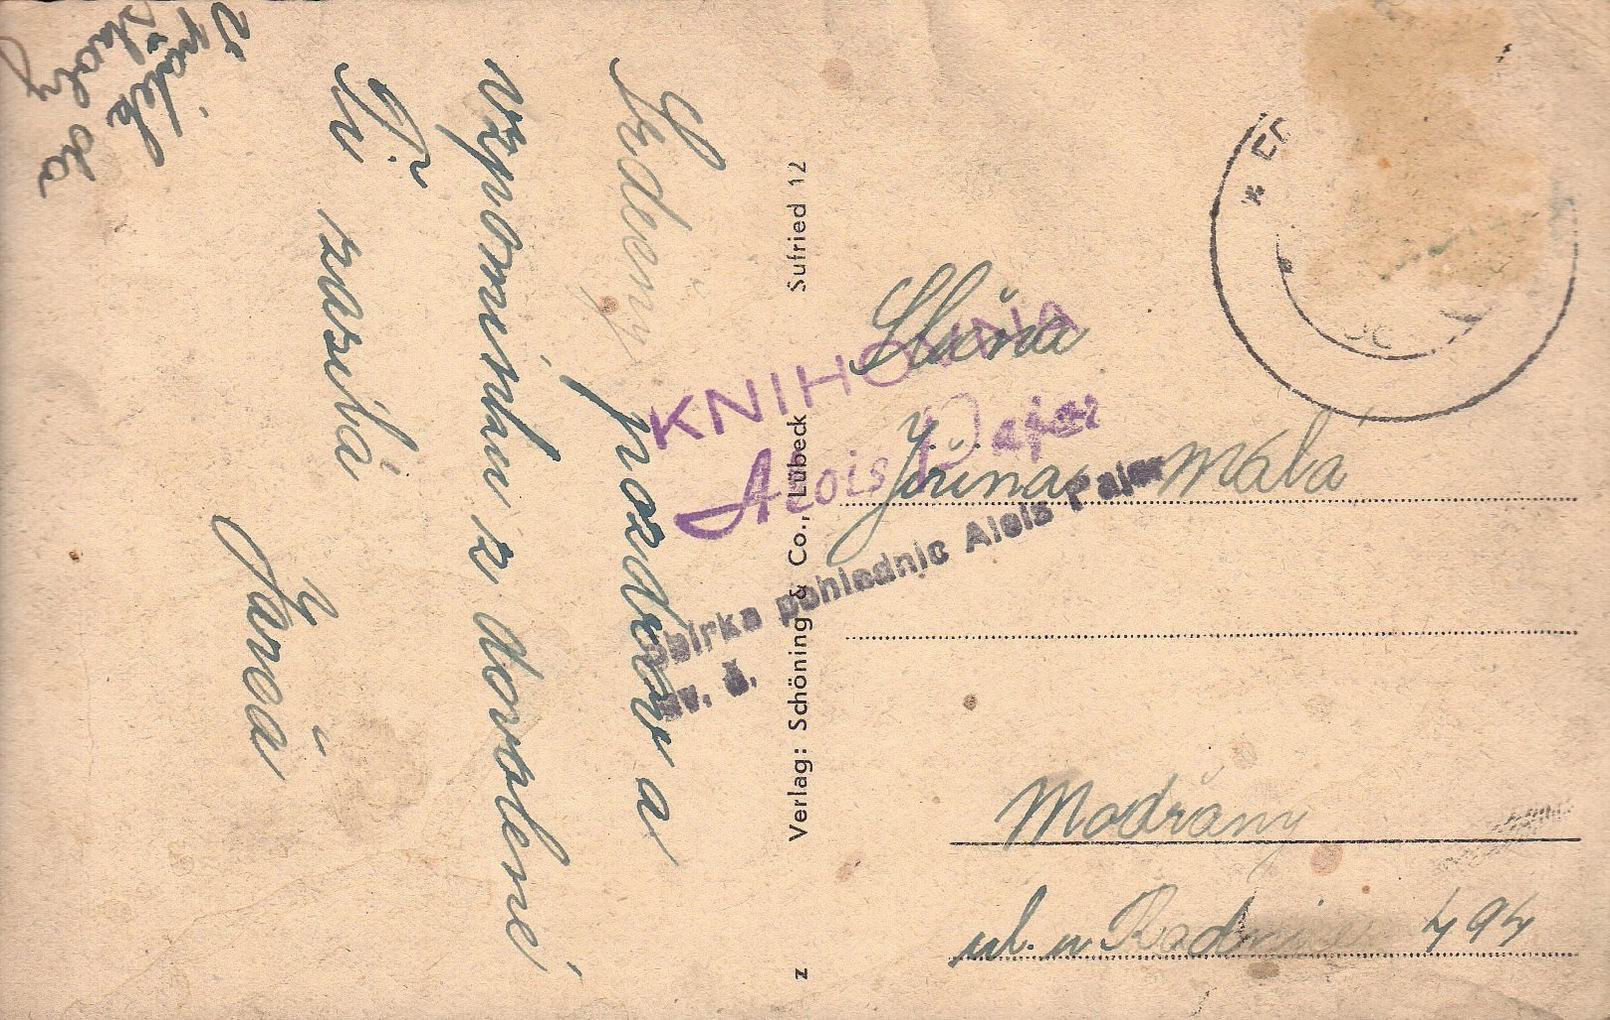 Srdečný pozdrav a
vzpomínku z dovolené
Ti zasílá
Jarča
V pátek
Verlag: Schöning & Co., Lübeck
Sufried 12
z
KNIHOVNA
Alois Pajer
Sbírka pohlednic Alois Pajer
Slečna
Jiřina Malá
Modřany
ul. u Radnice 494